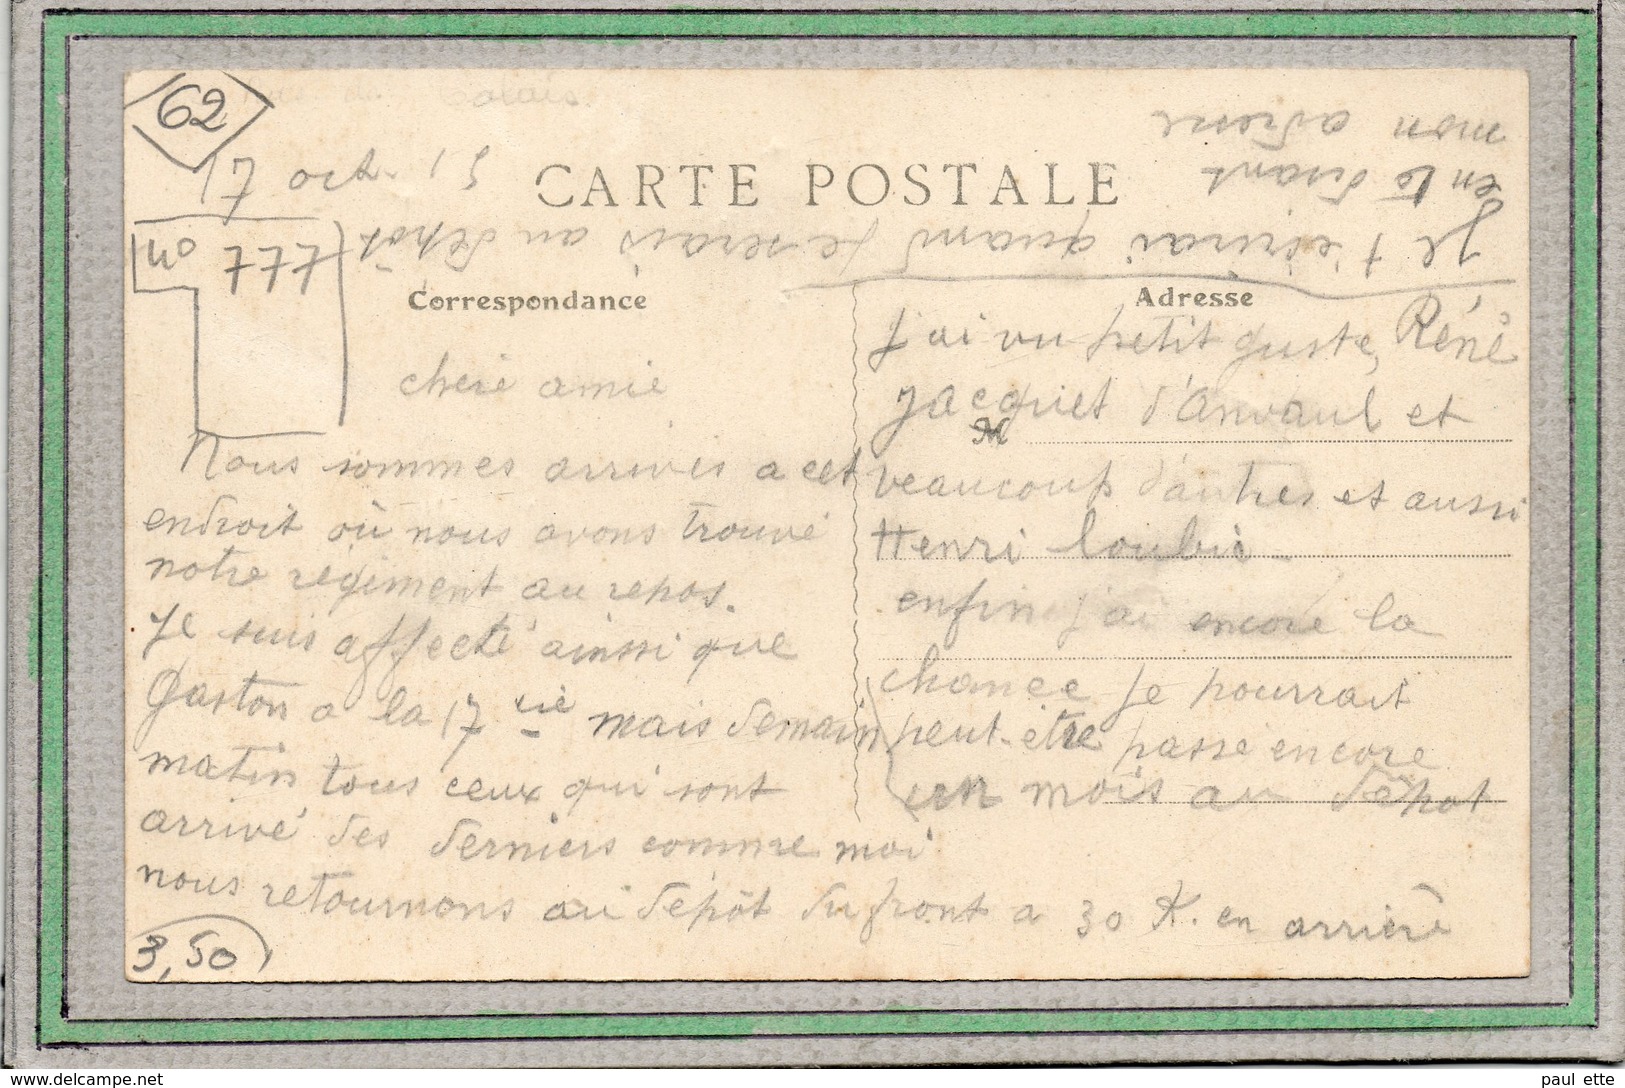 62
de Calais
17 oct. 15
CARTE POSTALE
no 777
Correspondance
Adresse
chere amie
Nous sommes arrivés a cet
endroit où nous avons trouvé
notre régiment au repos.
Je suis affecté ainsi que
Gaston a la 17 eie mais demain
matin tous ceux qui sont
arrivé des derniers comme moi
nous retournons au dépôt du front a 30 K. en arriere
J'ai vu petit guste, Réné
Jacquet d'Anvaul et
M
beaucoup d'autres et aussi
Henri Loubie
enfin j'ai encore la
chance je pourrait
peut-être passe encore
un mois au dépot
Je t'ecrirai quand je serais au dépôt
en te disant
mon adresse
3,50
paul ette